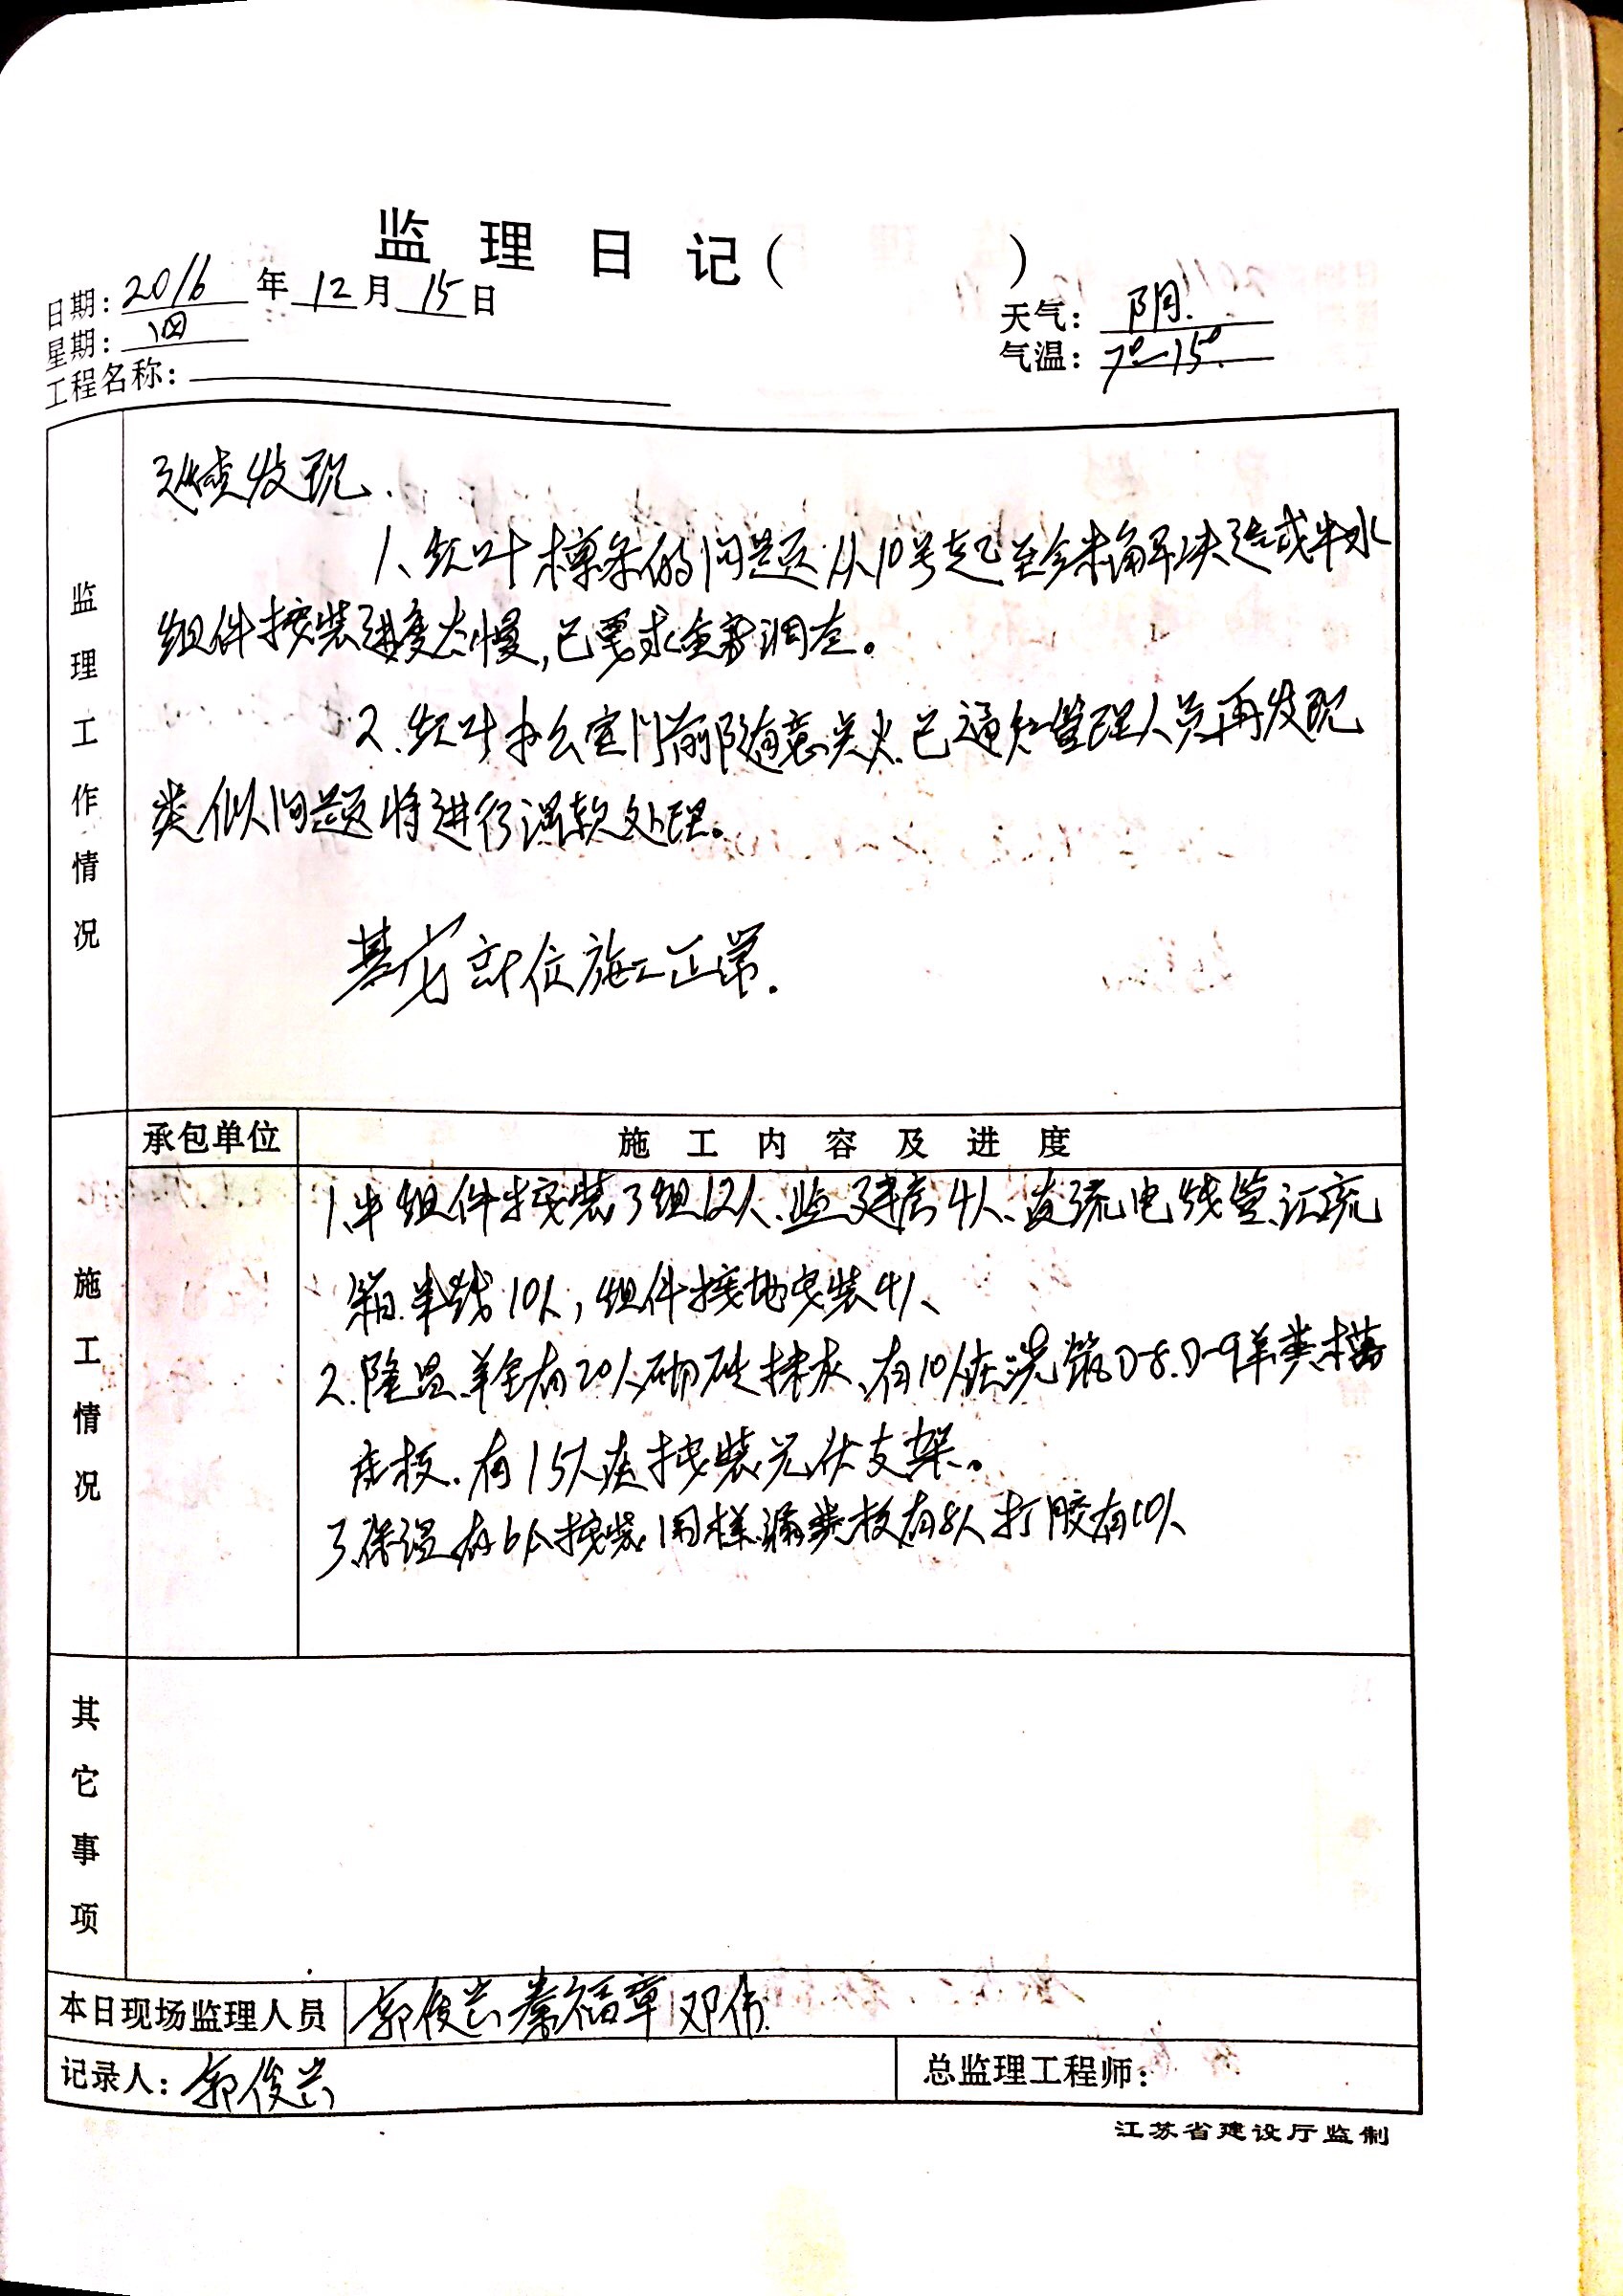 监理日记( )
日期: 2016 年 12 月 15 日
天气: 阴.
星期: 四
气温: 7°—15°.
工程名称:
监理工作情况
巡查发现、
1、红叶 檩条的问题从10号起至今未解决造成中水
组件按装进度太慢,已要求重新调查。
2、红叶办公室门前随意 火.已通知管理人员再发现
类似问题将进行罚款处理。
基它部位施工正常.
承包单位
施工内容及进度
施工情况
1、中 组件按装3组12人、 4人、直流电线管、汇流
箱.羊线10人,组件接地安装4人、
2.隆昌.羊舍有20人砌砖抹灰、有10人在浇筑D-8.D-9羊粪槽
底板.有15人在按装光伏支架。
3.保温有6人按装 漏粪板有8人打胶有10人
其它事项
本日现场监理人员
郭俊兴 秦福章 邓伟.
记录人: 郭俊兴
总监理工程师:
江苏省建设厅监制